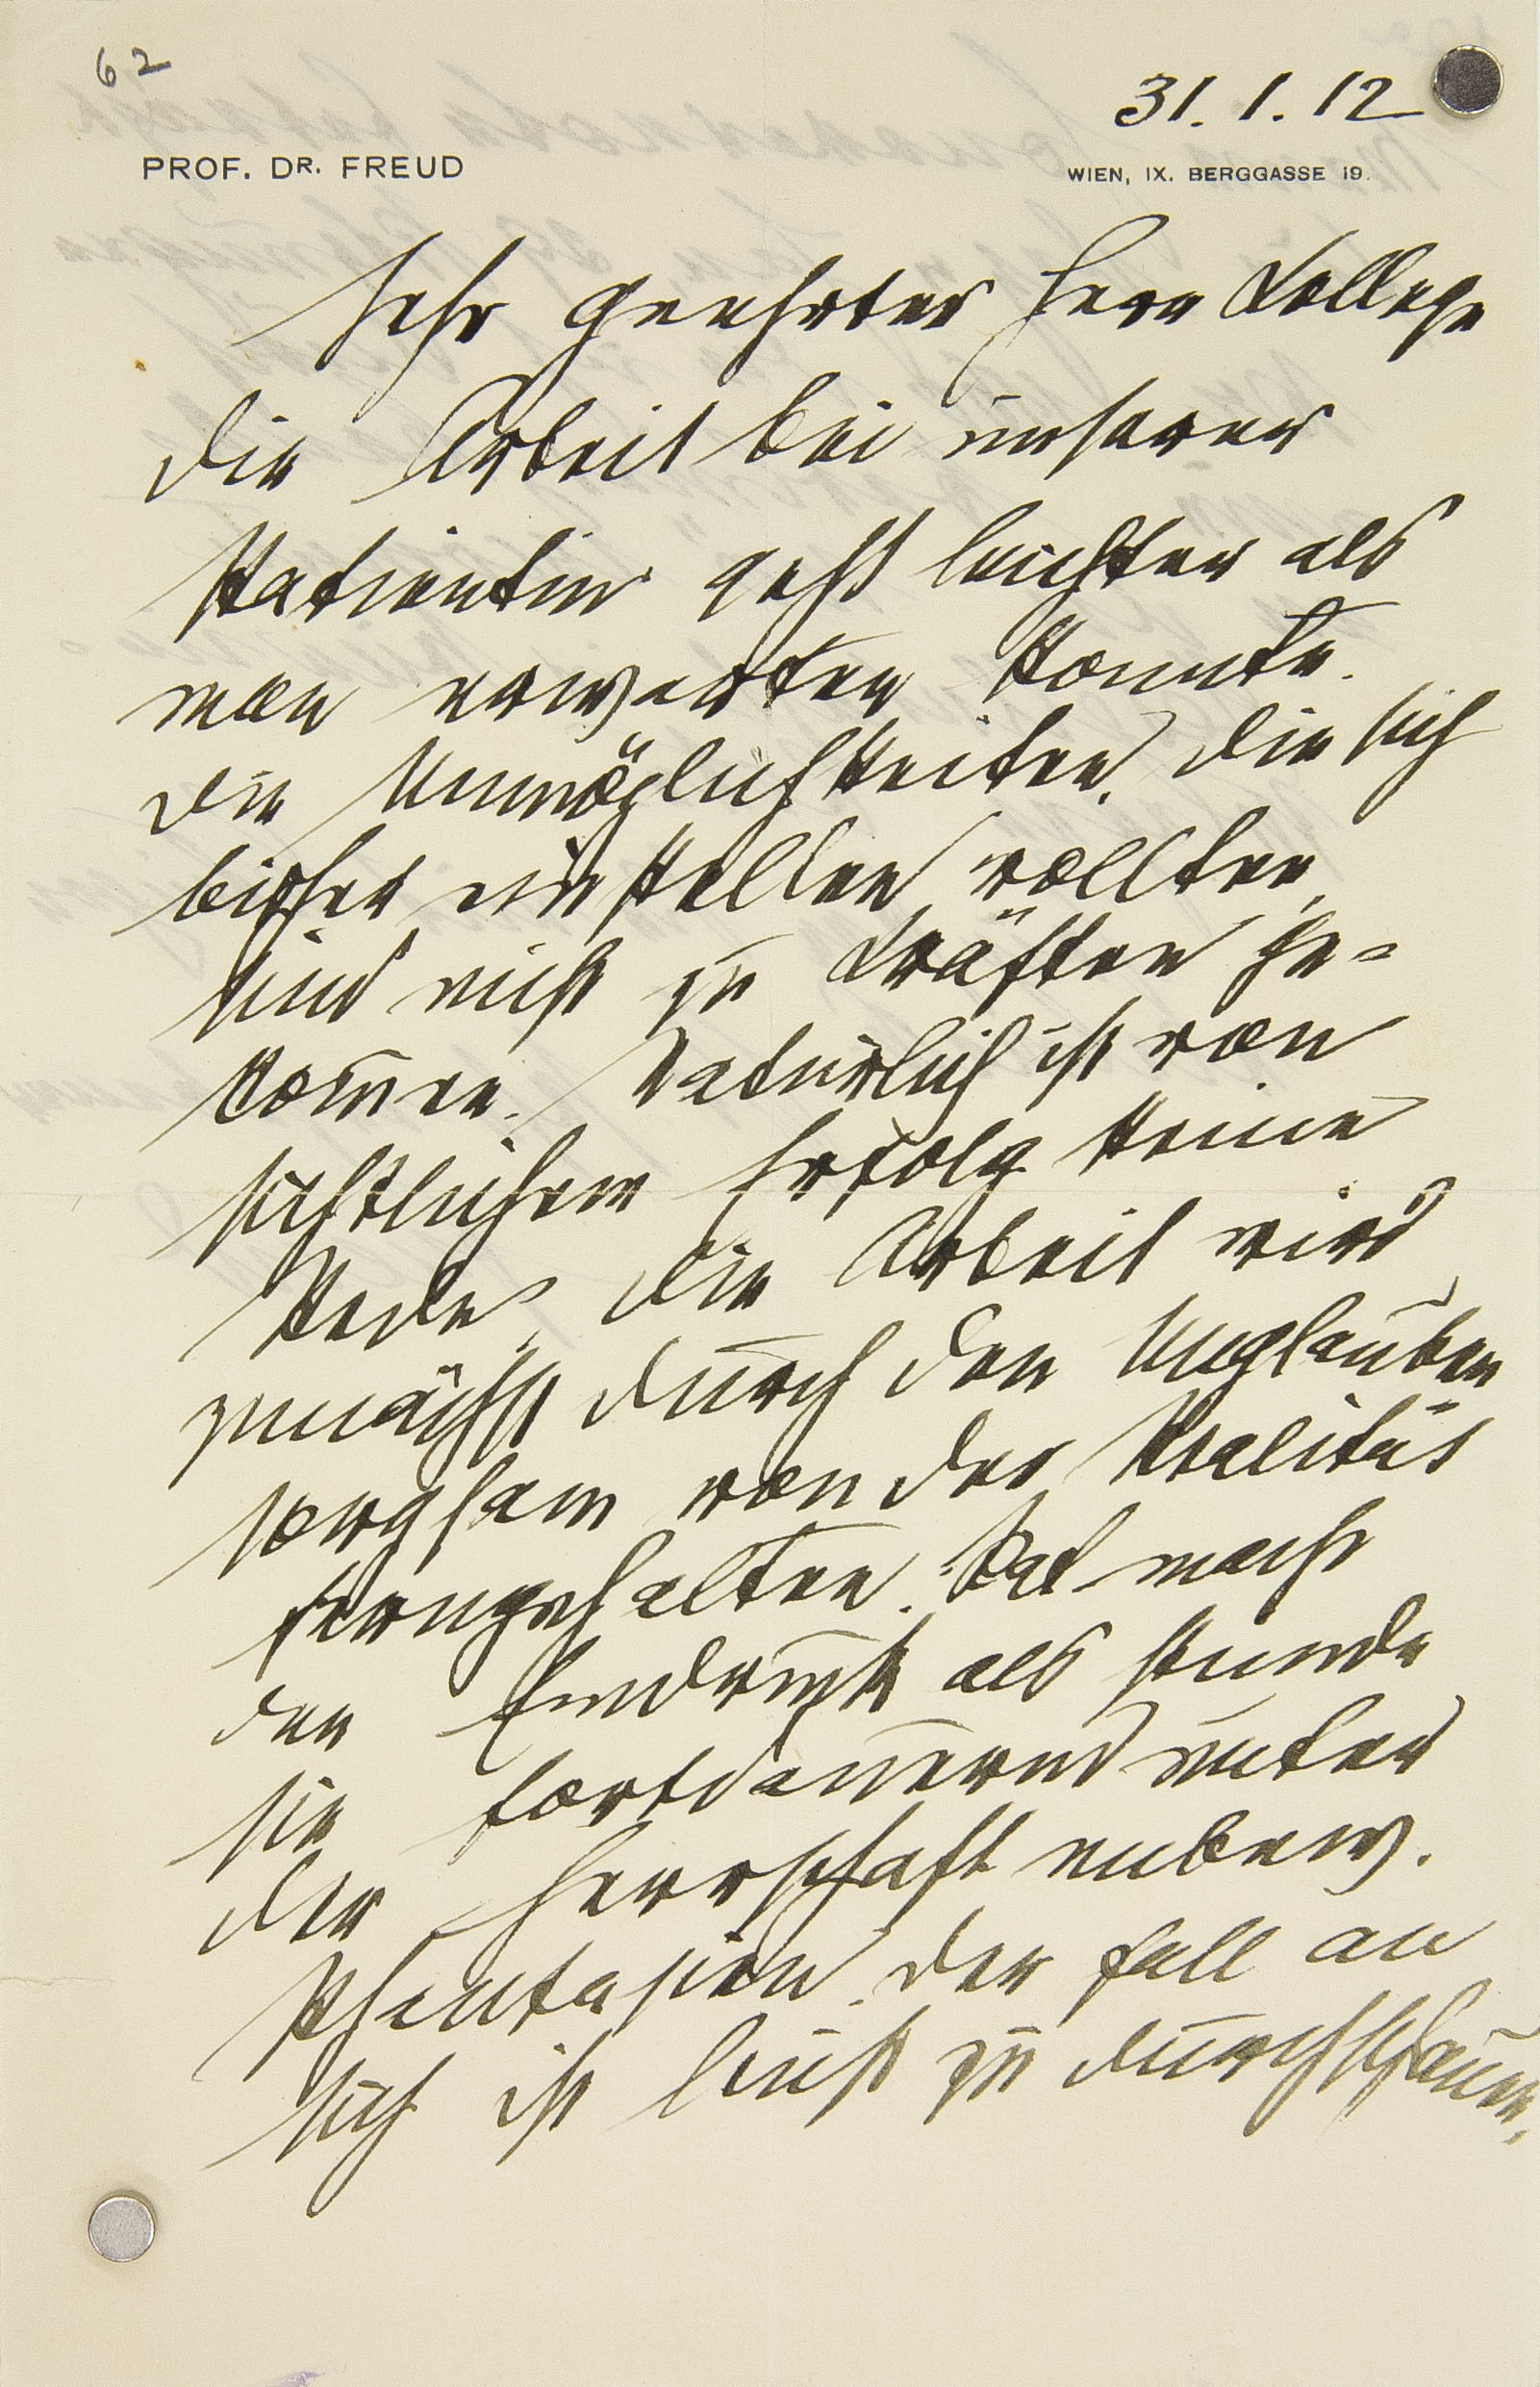 62
31. 1. 12
PROF. DR. FREUD
WIEN, IX. BERGGASSE 19.
Sehr geehrter Herr Kollege
Die Arbeit bei unserer
Patientin geht leichter als
man erwarten konnte.
Die Unmöglichkeiten, die sich
bisher einstellen wollten,
sind nicht zu Kräften ge-
kom̄en. Natürlich ist von
sichtlichem Erfolg keine
Rede, die Arbeit wird
zunächst durch den Unglauben
sorgsam von der Realität
ferngehalten. Pat. macht
den Eindruck als stünde
sie fortdauernd unter
der Herrschaft unbew.
Phantasien. Der Fall an
sich ist leicht zu durchschauen,